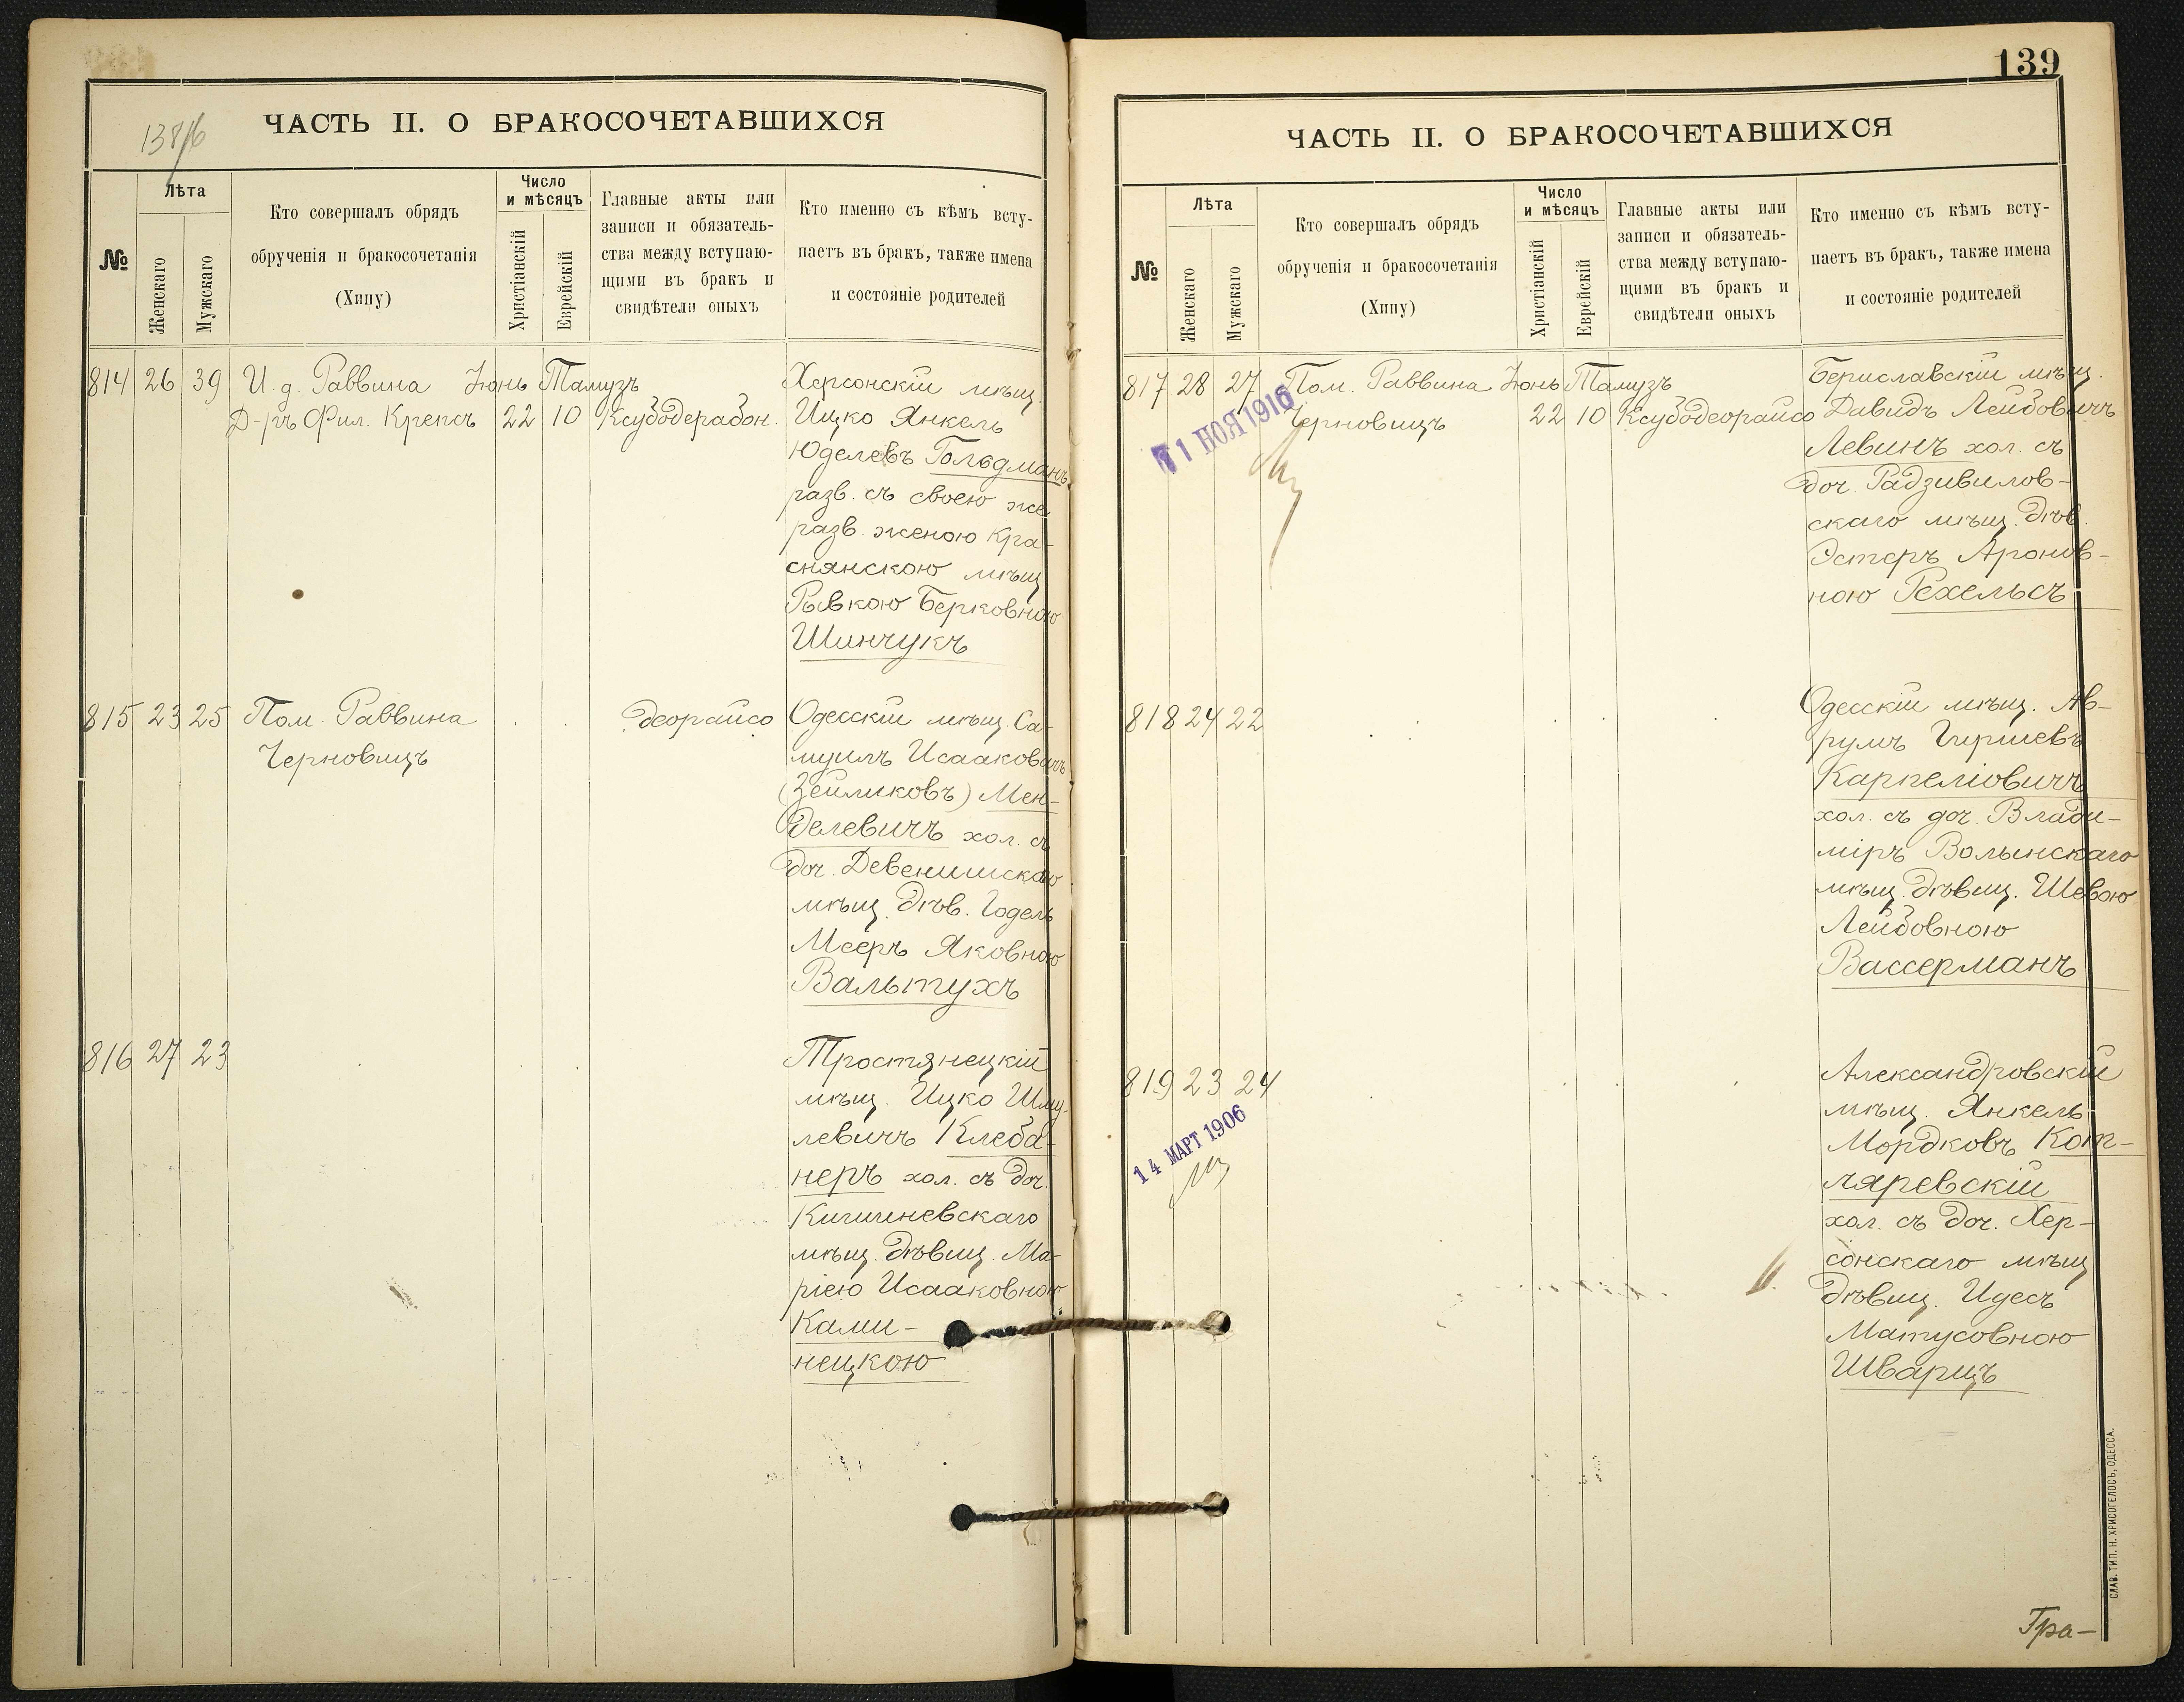 138/6
ЧАСТЬ II. О БРАКОСОЧЕТАВШИХСЯ
№
Лѣта
Женскаго
Мужскаго
Кто совершалъ обрядъ
обрученія и бракосочетанія
(Хипу)
Число
и мѣсяцъ
Христіанскій
Еврейскій
Главные акты или
записи и обязатель-
ства между вступаю-
щими въ бракъ и
свидѣтели оныхъ
Кто именно съ кѣмъ всту-
паетъ въ бракъ, также имена
и состояніе родителей
814 26 39 И. д. Раввина Іюнь Тамузъ
Д-ръ Фил. Крепсъ 22 10 Ксубодерабон.
Херсонскій мѣщ.
Ицко Янкель
Юделевъ Гольдманъ
разв. съ своею же
разв. женою Кра-
снянскою мѣщ.
Рывкою Берковною
Шинчукъ
815 23 25 Пом. Раввина
Черновицъ
деорайсо
Одесскій мѣщ. Са-
муилъ Исааковичъ
(Зейликовъ) Мен-
делевичъ хол. съ
доч. Девенишскаго
мѣщ. дѣв. Годель
Мееръ Яковною
Вальтухъ
816 27 23
Тростянецкій
мѣщ. Ицко Шму-
левичъ Клеба-
неръ хол. съ доч.
Кишиневскаго
мѣщ. дѣвиц. Ма-
ріею Исааковною
Ками-
нецкою
139
ЧАСТЬ II. О БРАКОСОЧЕТАВШИХСЯ
№
Лѣта
Женскаго
Мужскаго
Кто совершалъ обрядъ
обрученія и бракосочетанія
(Хипу)
Число
и мѣсяцъ
Христіанскій
Еврейскій
Главные акты или
записи и обязатель-
ства между вступаю-
щими въ бракъ и
свидѣтели оныхъ
Кто именно съ кѣмъ всту-
паетъ въ бракъ, также имена
и состояніе родителей
817 28 27 Пом. Раввина Іюнь Тамузъ
Черновицъ 22 10 Ксубодеорайсо
1 НОЯ 1916
Бериславскій мѣщ.
Давидъ Лейбовичъ
Левинъ хол. съ
доч. Радзивилов-
скаго мѣщ. дѣв.
Эстеръ Аронов-
ною Рехельсъ
818 24 22
Одесскій мѣщ. Ав-
румъ Гиршевъ
Карпеліовичъ
хол. съ доч. Влади-
міръ Волынскаго
мѣщ. дѣвиц. Шевою
Лейбовною
Вассерманъ
819 23 24
14 МАРТ 1906
Александровскій
мѣщ. Янкель
Мордковъ Кот-
ляревскій
хол. съ доч. Хер-
сонскаго мѣщ
дѣвиц. Идесъ
Матусовною
Шварцъ
Гра-
СЛАВ. ТИП. Н. ХРИСОГЕЛОСЪ, ОДЕССА.